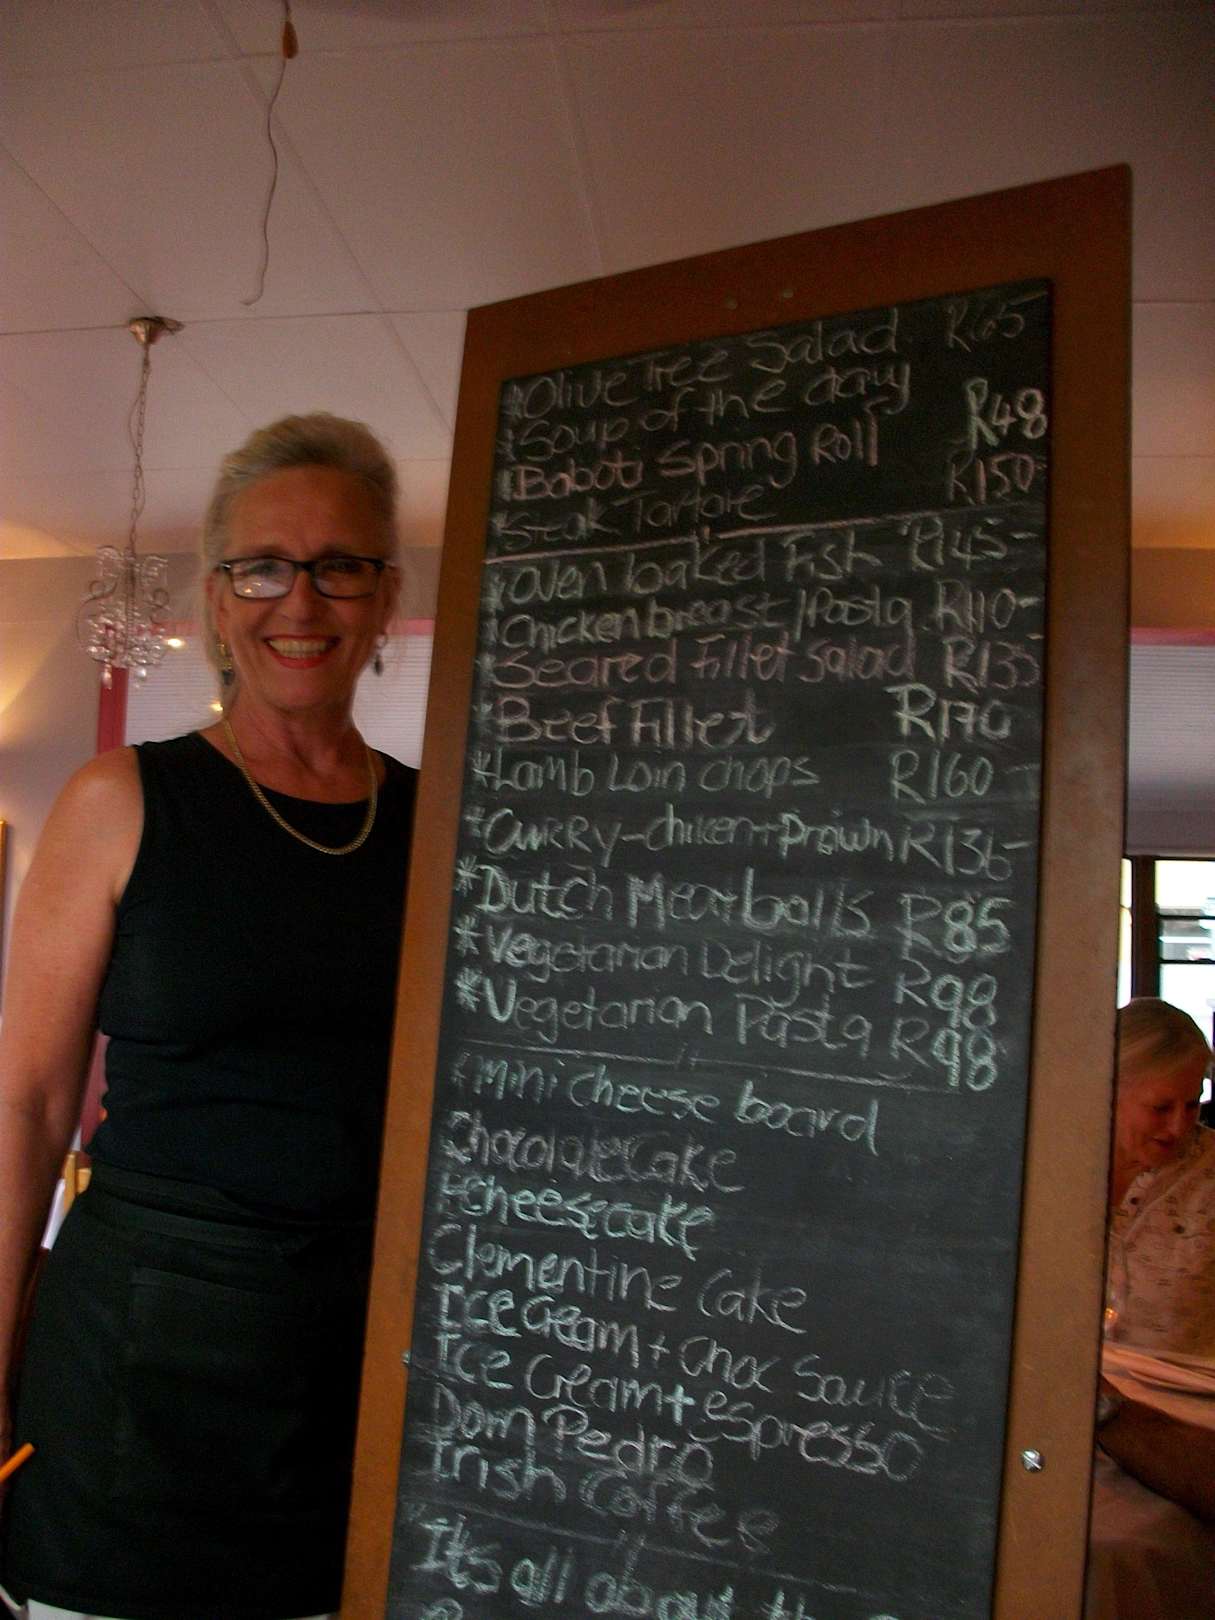 *Olive Tree Salad R65
*Soup of the day
*Boboti Spring Roll R48
*Steak Tartare R150-
*Oven baked Fish R145-
*Chicken breast/Pasta R110-
*Seared Fillet Salad R135-
*Beef Fillet R170
*Lamb Loin chops R160-
*Curry-chicken+Prawn R136-
*Dutch Meatballs R85
*Vegetarian Delight R98
*Vegetarian Pasta R98
*mini cheese board
Chocolate Cake
*Cheesecake
Clementine Cake
Ice Cream + Choc Sauce
Ice Cream + espresso
Dom Pedro
Irish Coffee
It's all about